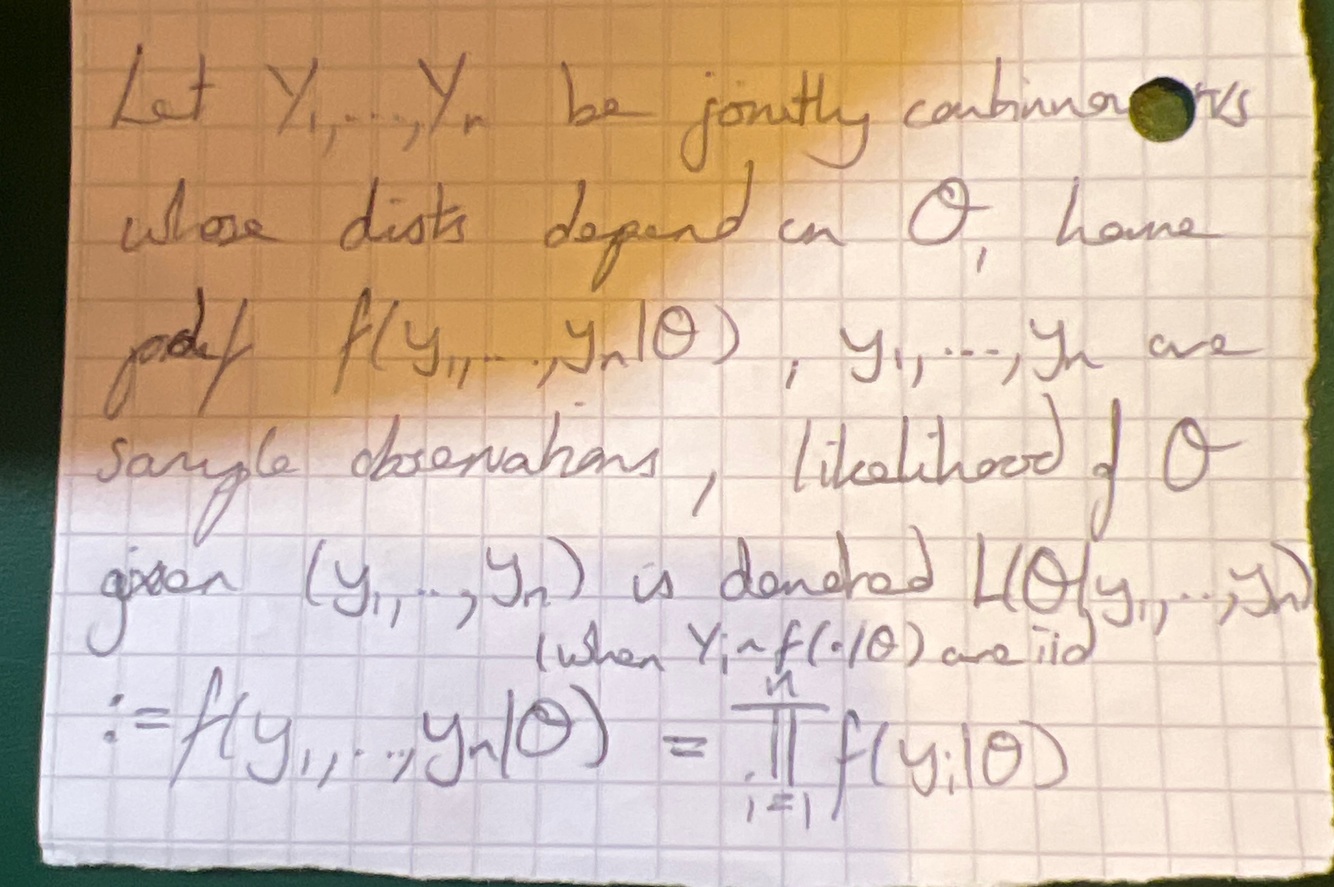 Let Y₁,...,Yₙ be jointly continuous rvs
whose dists depend on θ, have
pdf f(y₁,...,yₙ|θ), y₁,...,yₙ are
sample observations, likelihood of θ
given (y₁,...,yₙ) is denoted L(θ|y₁,...,yₙ)
(when Yᵢ~f(·|θ) are iid)
:=f(y₁,...,yₙ|θ) = ∏ⁿᵢ₌₁ f(yᵢ|θ)